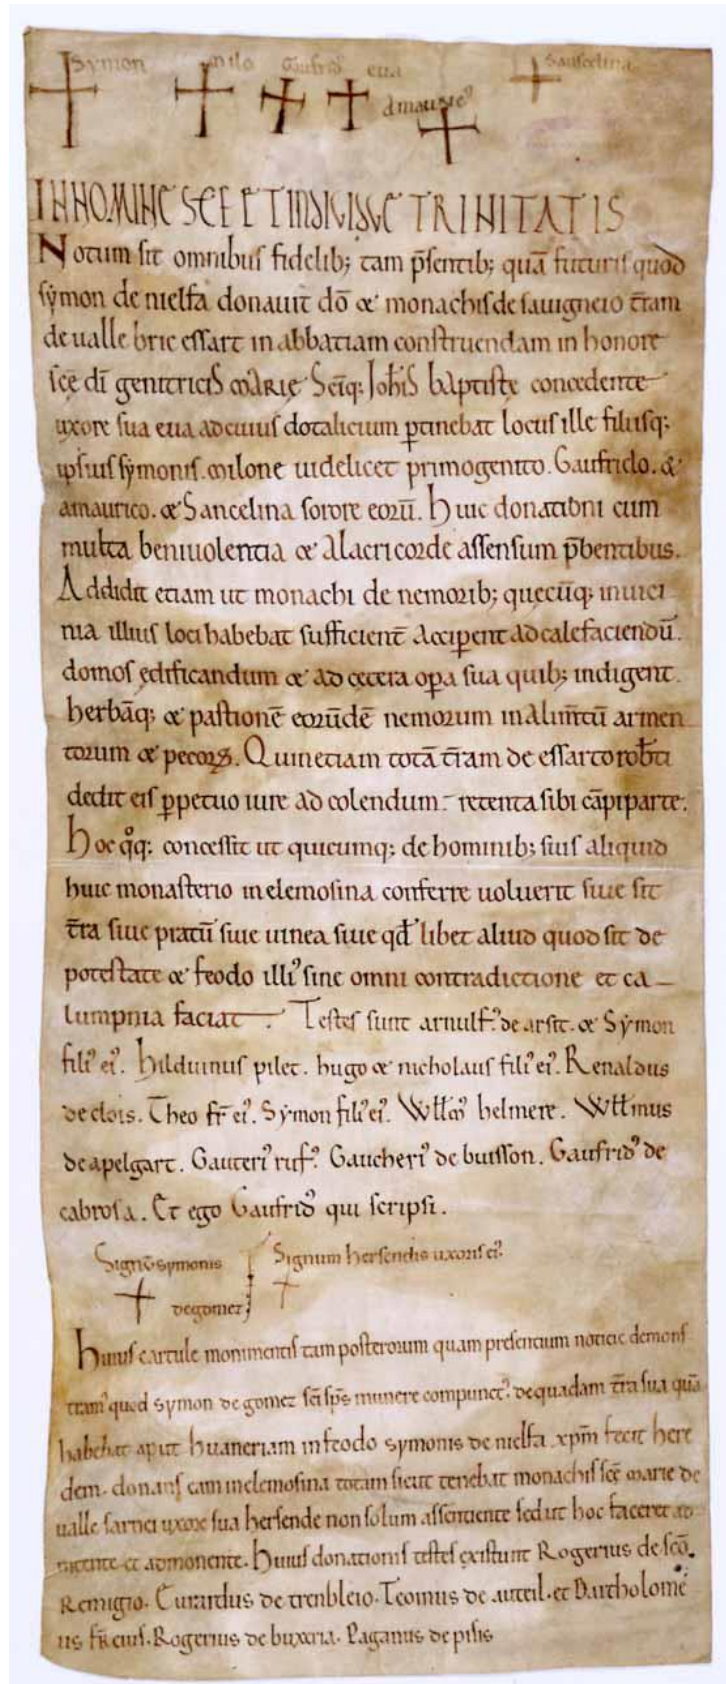 Symon milo Gaufrid' eua Sanscelina
Amauric'
IN NOMINE SCE ET INDIVIDVE TRINITATIS
Notum sit omnibus fidelib; tam p̄sentib; quā futuris quod
symon de nielfa donauit dō & monachis de sauigneio t̄ram
de ualle bric essart in abbatiam construendam in honore
scę dī genitricis MARIĘ Sc̄iq; Ioh̄is baptistę concedente
uxore sua eua ad cuius dotalicium ꝑtinebat locus ille filiisq;
ipsius symonis. milone uidelicet primogenito. Gaufrido. &
amaurico. & Sancelina sorore eorū. Huic donationi cum
multa beniuolentia & alacri corde assensum p̄bentibus.
Addidit etiam ut monachi de nemorib; quecūq; in uici
nia illius loci habebat sufficient̄ acciperent ad calefaciendū.
domos ędificandum & ad cetera opa sua quib; indigent.
herbāq; & pastionē eorūdē nemorum in alim̄tū armen
torum & pecorꝝ. Quin etiam totā t̄ram de essarto rob̄ti
dedit eis ꝑpetuo iure ad colendum. retenta sibi cāpiparte.
Hoc qͦq; concessit ut quicumq; de hominib; suis aliquid
huic monasterio in elemosina conferre uoluerit siue sit
t̄ra siue pratū siue uinea siue qđ libet aliud quod sit de
potestate & feodo illi' sine omni contradictione et ca
lumpnia faciat. Testes sunt arnulf' de arsit. & Symon
fili' ei'. Hilduinus pilet. hugo & nicholaus fili' ei'. Renaldus
de clois. Theo fr̄ ei'. Symon fili' ei'. Will̄m' belmere. Will̄mus
de apelgart. Gauteri' ruf'. Gaucheri' de buisson. Gaufrid' de
cabrosa. Et ego Gaufrid' qui scripsi.
Signū symonis Signum hersendis uxoris ei'.
de gomez
Huius cartule monimentis tam posterorum quam presentium noticie demons
tram' quod symon de gomez sc̄i sp̄s munere compunct' de quadam t̄ra sua quā
habebat aput huaneriam in feodo symonis de nielfa xp̄m fecit here
dem. donans eam in elemosina totam sicut tenebat monachis scę marie de
ualle sarnei uxore sua hersende non solum assentiente sed ut hoc faceret ad
et admonente. Huius donationis testes existunt Rogerius de sc̄o
Remigio. de trenbleio. Teomus de auteil. et Bartholome
us fr̄ eius. Rogerius de buxeria. Paganus de pisis